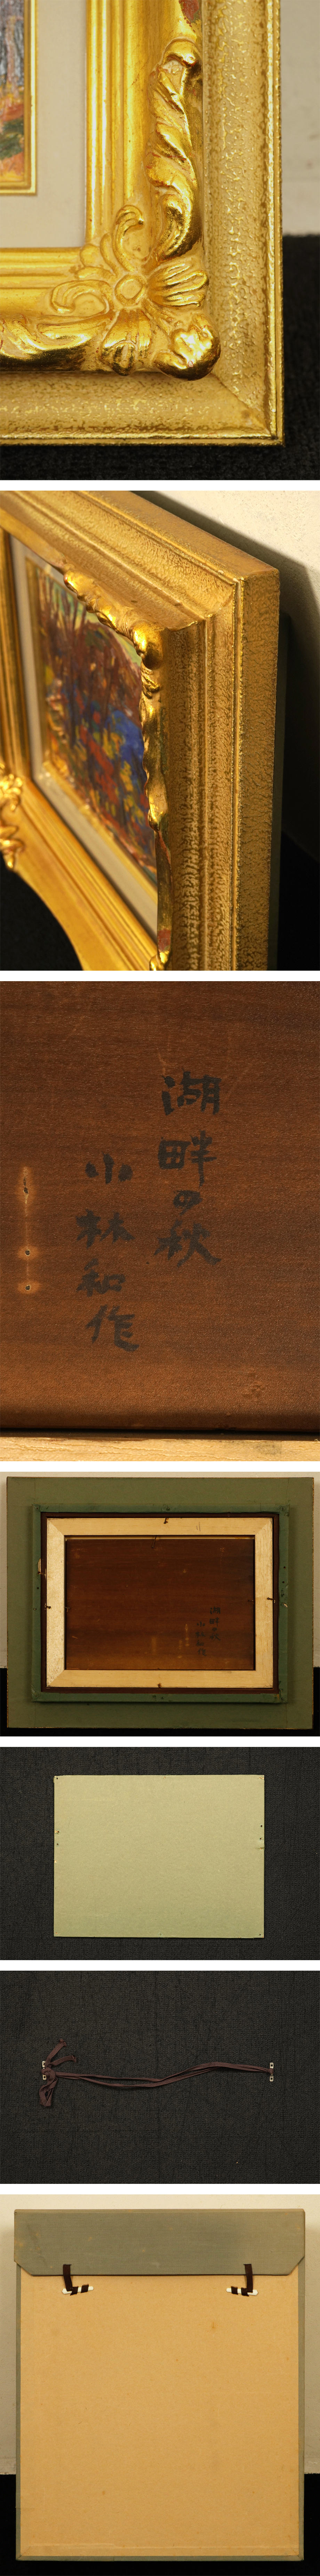 湖畔の秋
小林和作